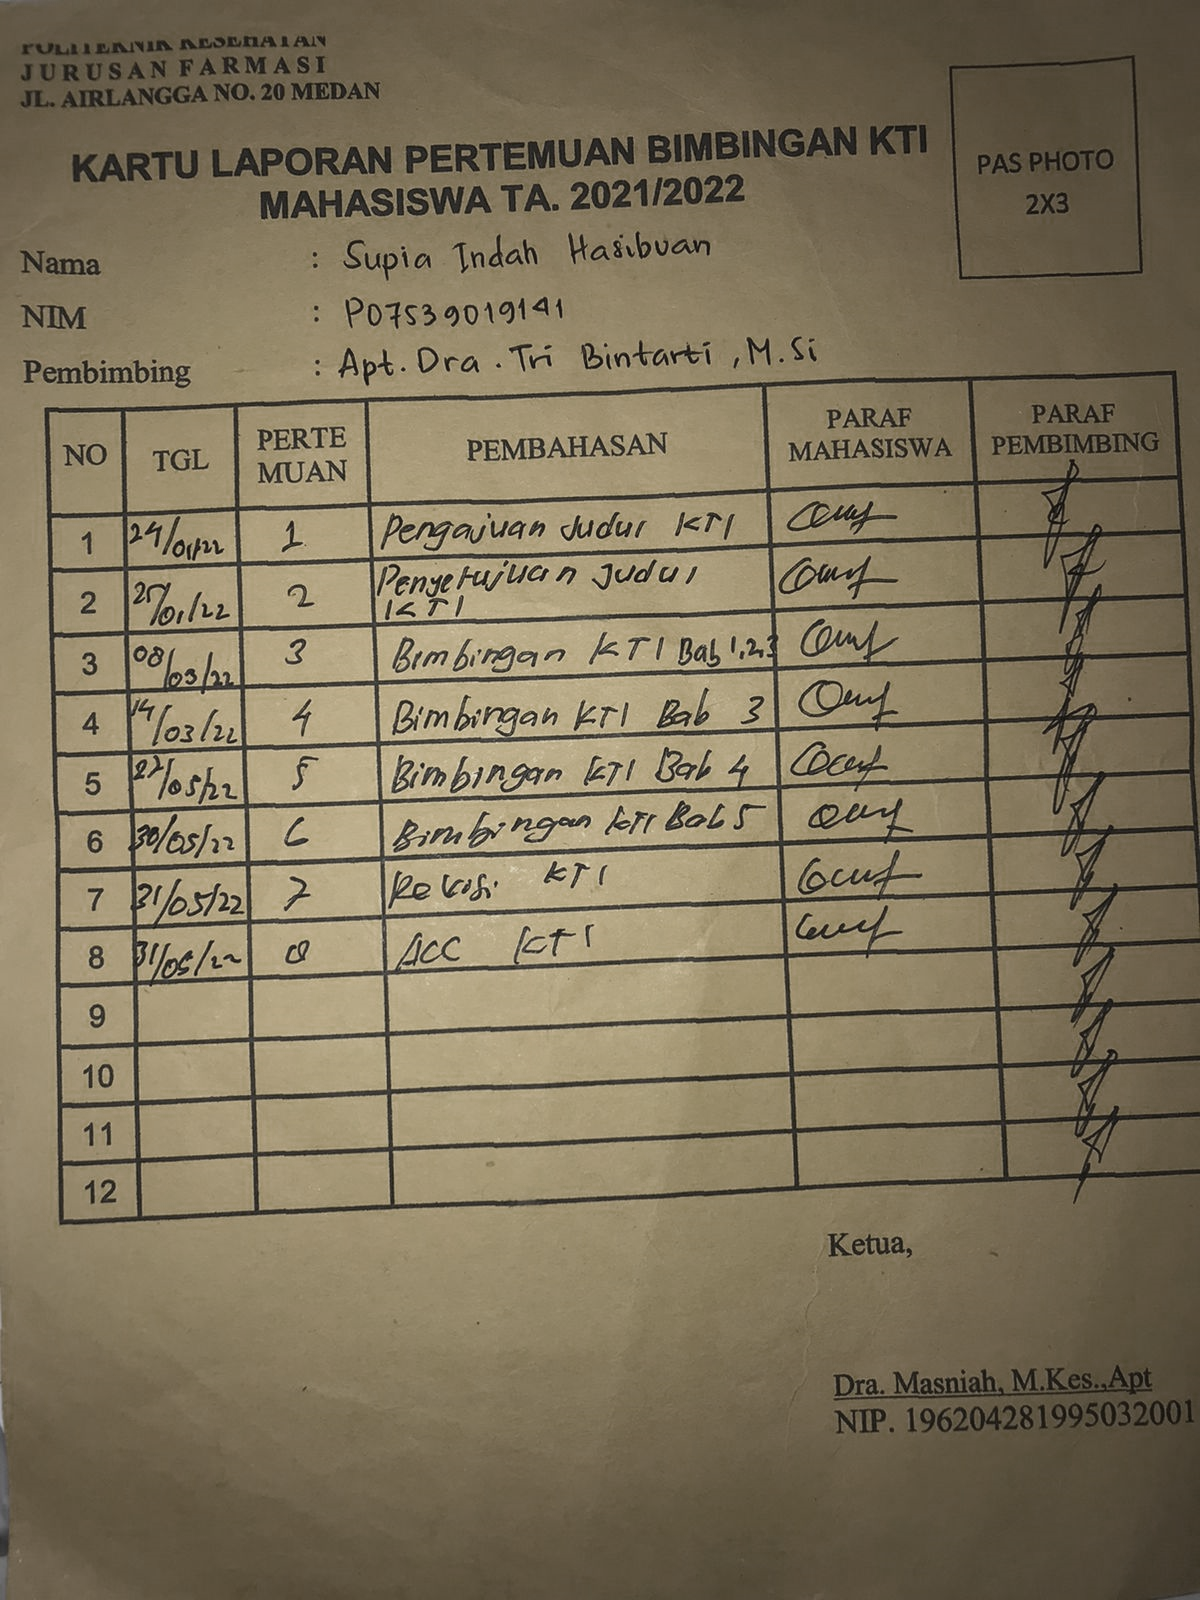 POLITEKNIK KESEHATAN
JURUSAN FARMASI
JL. AIRLANGGA NO. 20 MEDAN
PAS PHOTO
2X3
KARTU LAPORAN PERTEMUAN BIMBINGAN KTI
MAHASISWA TA. 2021/2022
Nama : Supia Indah Hasibuan
NIM : P07539019141
Pembimbing : Apt. Dra. Tri Bintarti, M.Si
NO TGL PERTE MUAN PEMBAHASAN PARAF MAHASISWA PARAF PEMBIMBING
1 24/01/22 1 Pengajuan Judul KTI
2 25/01/22 2 Penyetujuan Judul
KTI
3 08/03/22 3 Bimbingan KTI Bab 1,2,3
4 14/03/22 4 Bimbingan KTI Bab 3
5 27/05/22 5 Bimbingan KTI Bab 4
6 30/05/22 6 Bimbingan KTI Bab 5
7 31/05/22 7 Revisi KTI
8 31/05/22 8 ACC KTI
9
10
11
12
Ketua,
Dra. Masniah, M.Kes.,Apt
NIP. 196204281995032001